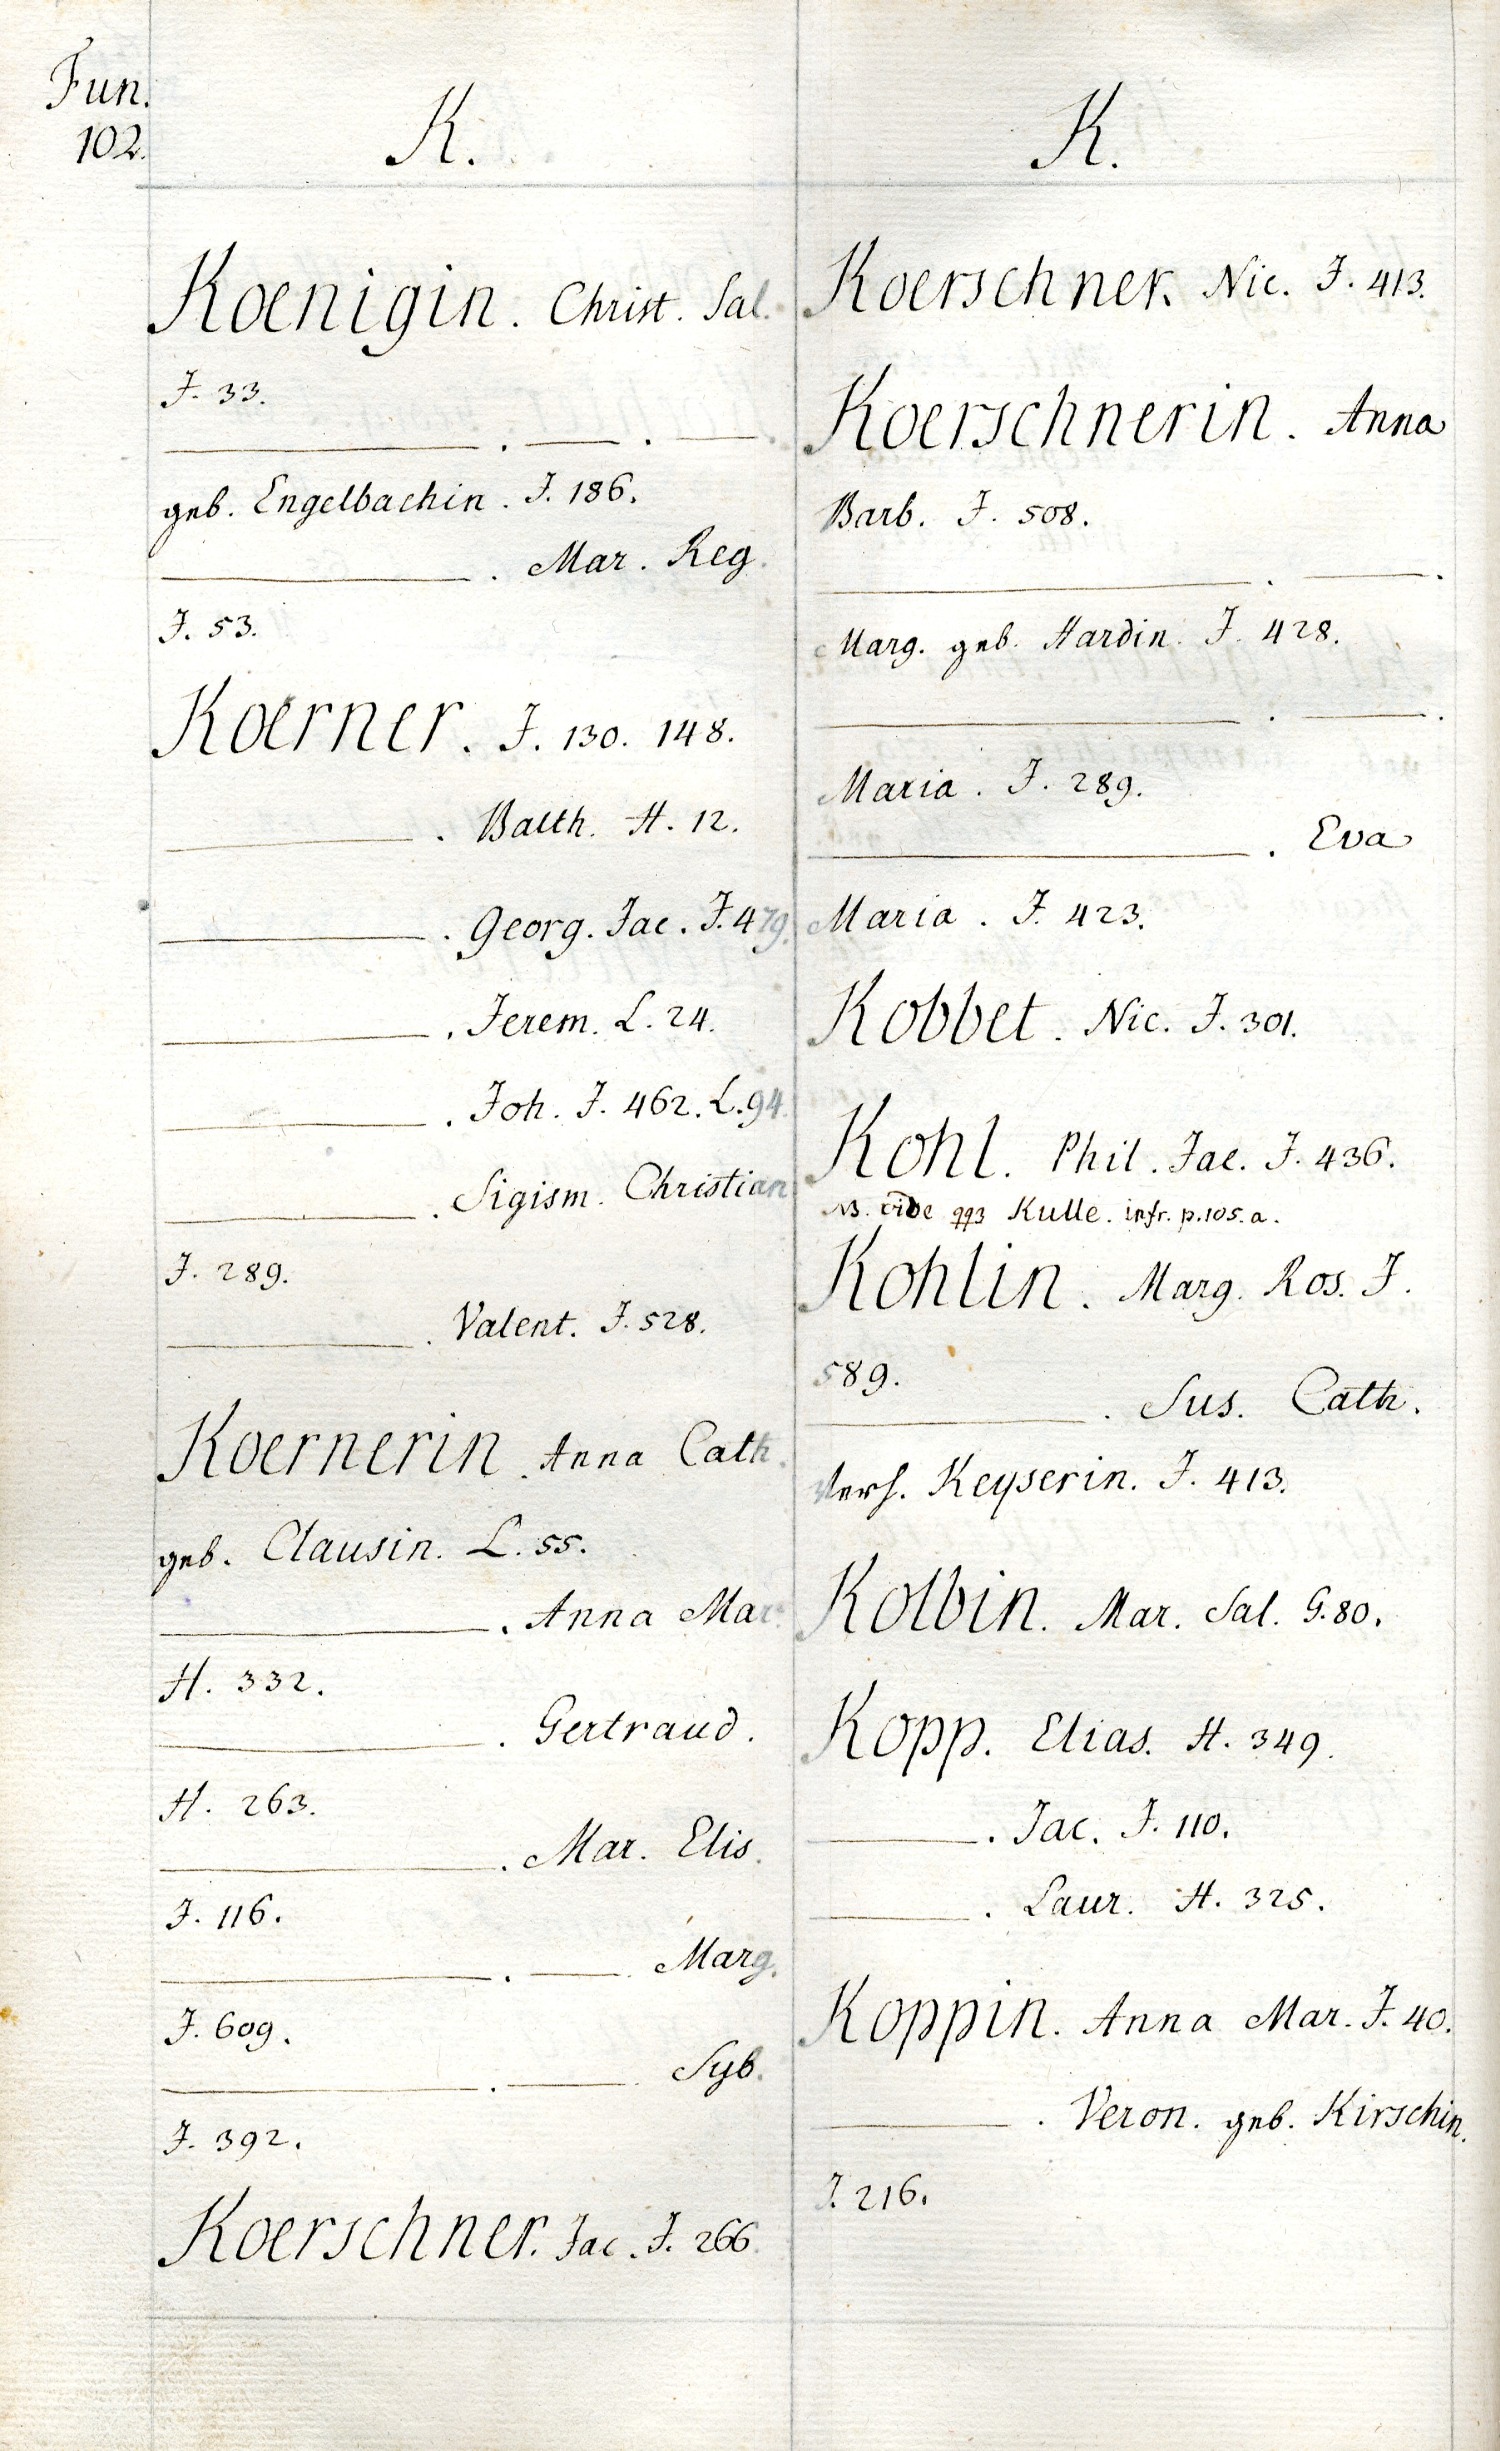 Fun.
102.
K.
Koenigin. Christ. Sal.
J. 33.
———. ———. ———.
geb. Engelbachin. J. 186.
———. Mar. Reg.
J. 53.
Koerner. J. 130. 148.
———. Balth. H. 12.
———. Georg. Jac. J. 479.
———. Jerem. L. 24.
———. Joh. J. 462. L. 94.
———. Sigism. Christian
J. 289.
———. Valent. J. 528.
Koernerin. Anna Cath.
geb. Clausin. L. 55.
———. Anna Mar.
H. 332.
———. Gertraud.
H. 263.
———. Mar. Elis.
J. 116.
———. ——— Marg.
J. 609.
———. ——— Syb.
J. 392.
Koerschner. Jac. J. 266.
K.
Koerschner. Nic. J. 413.
Koerschnerin. Anna
Barb. J. 508.
———. ———.
Marg. geb. Hardin. J. 428.
———. ———.
Maria. J. 289.
———. Eva
Maria. J. 423.
Kobbet. Nic. J. 301.
Kohl. Phil. Jac. J. 436.
NB. vide Kulle. infr. p. 105. a.
Kohlin. Marg. Ros. J.
589.
———. Sus. Cath.
Verh. Keyserin. J. 413.
Kolbin. Mar. Sal. G. 80.
Kopp. Elias. H. 349.
———. Jac. J. 110.
———. Laur. H. 325.
Koppin. Anna Mar. J. 40.
———. Veron. geb. Kirschin.
J. 216.